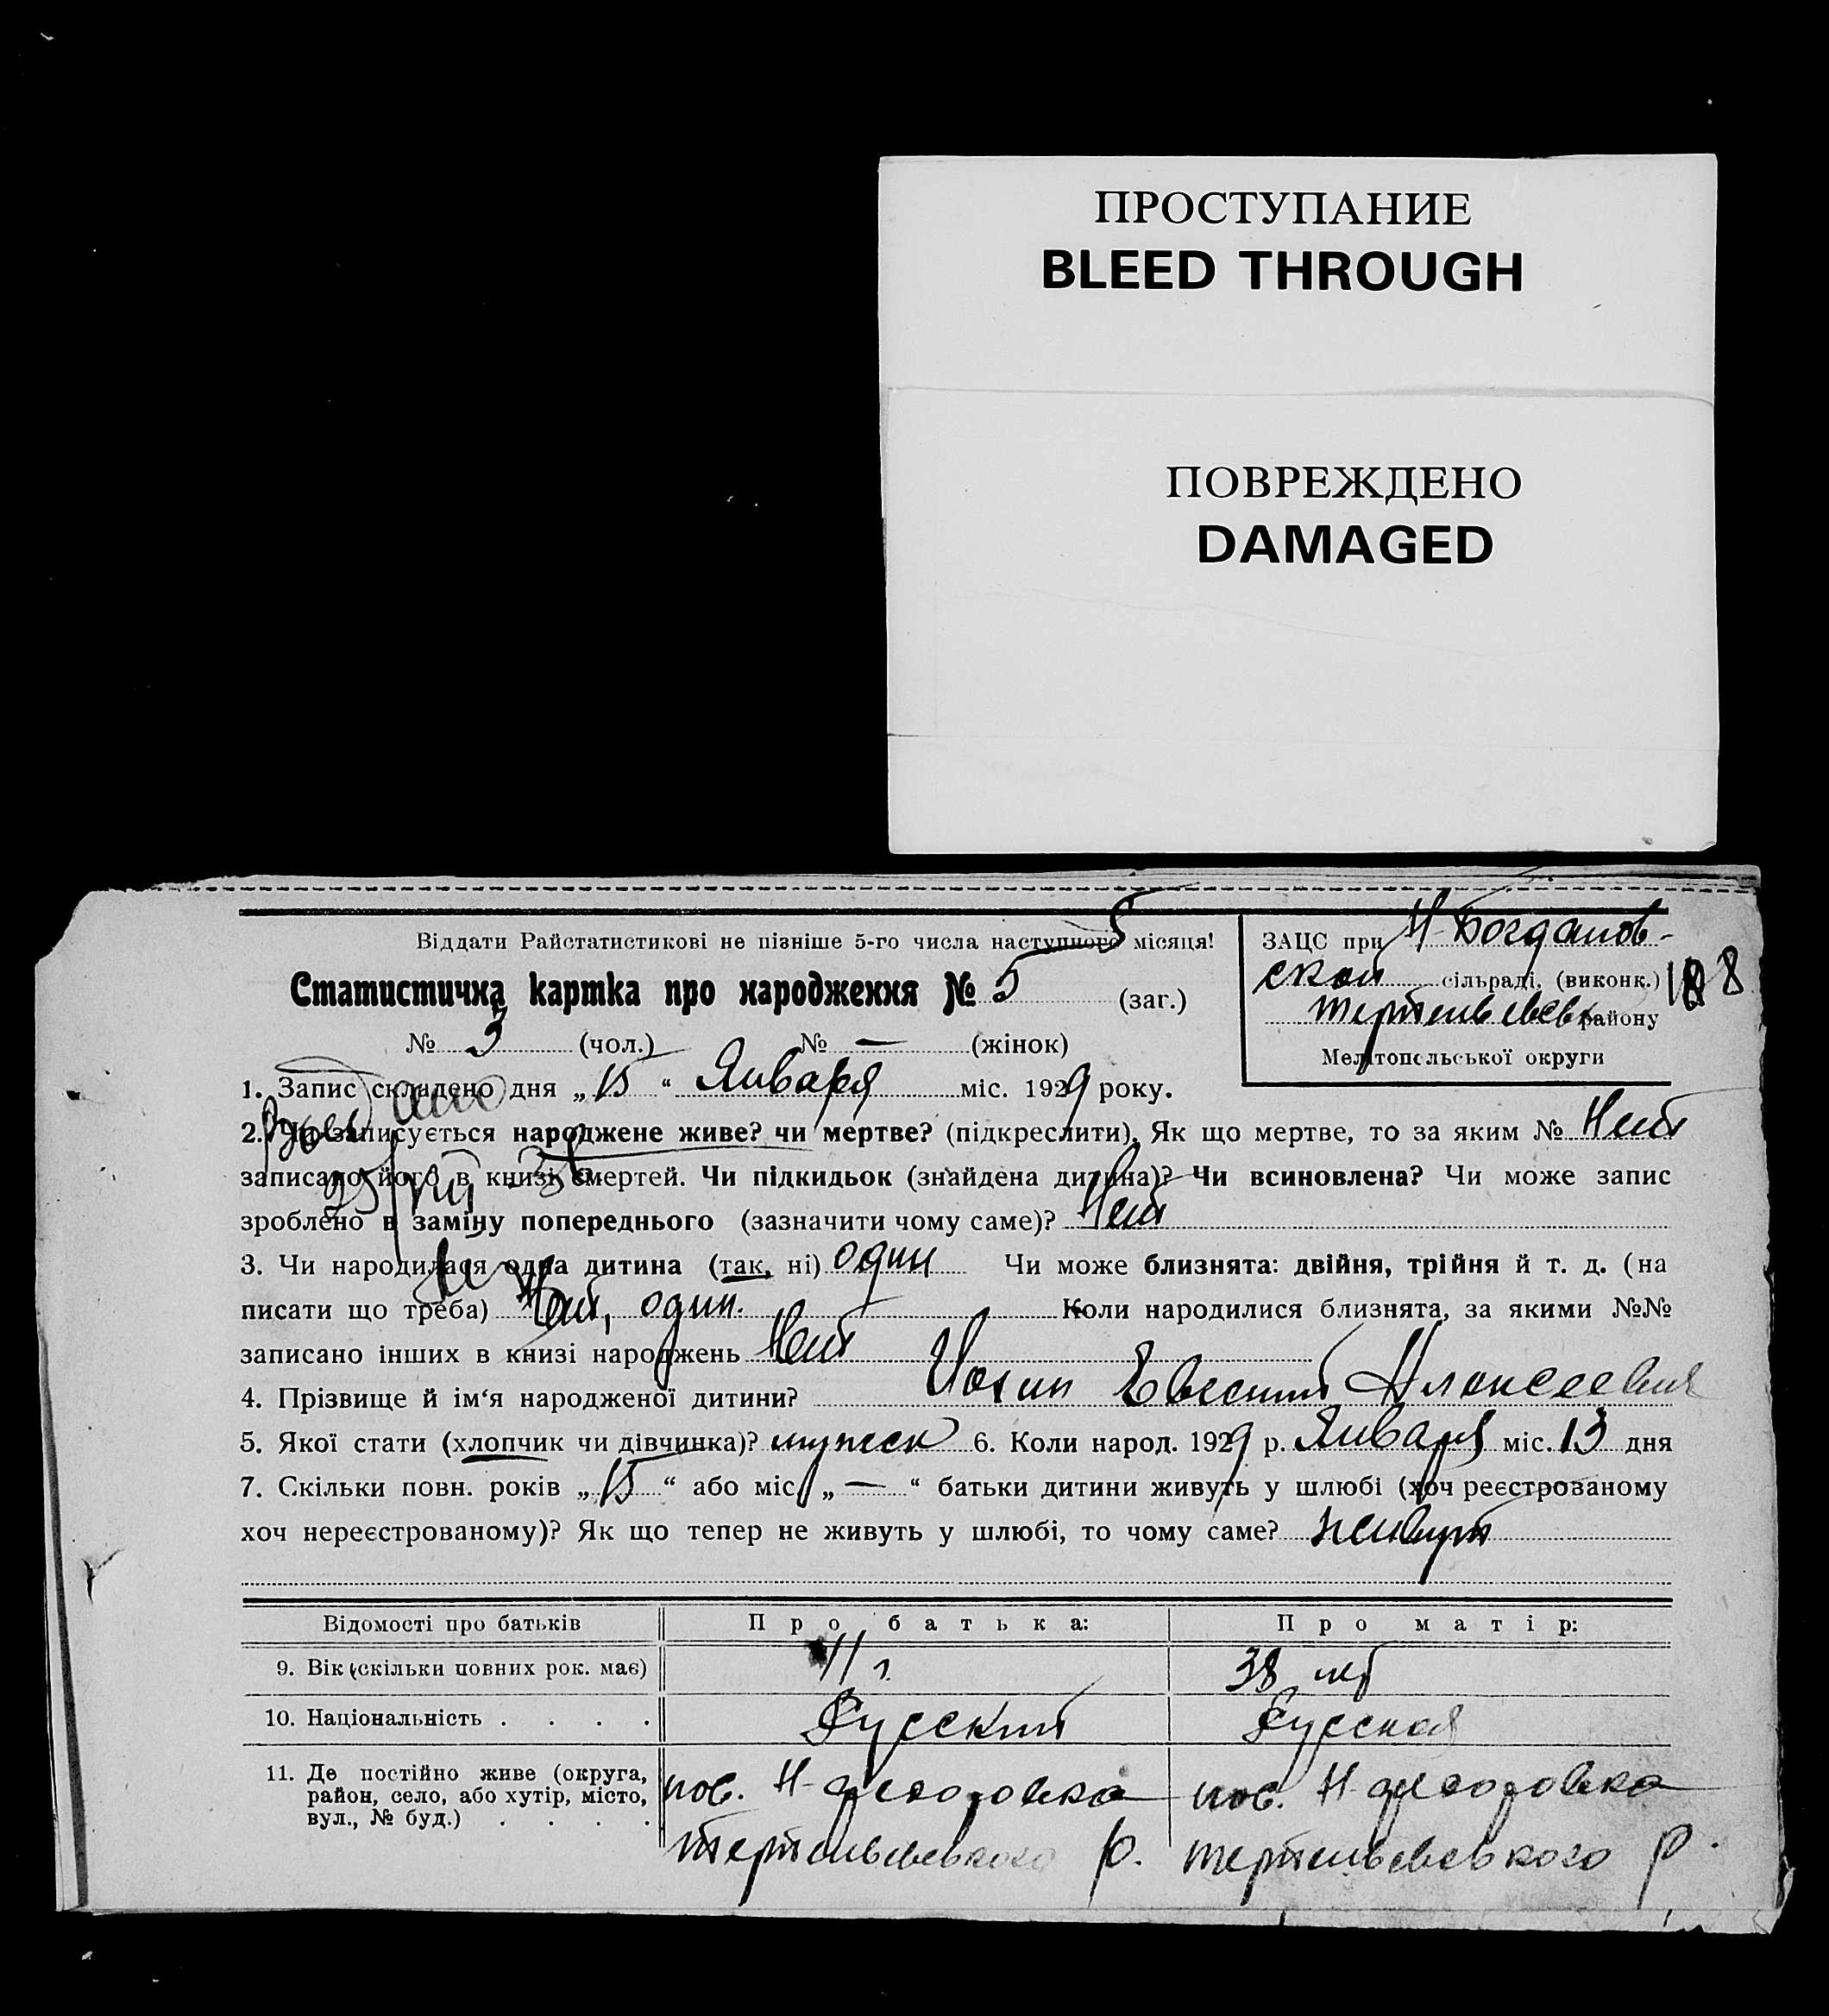 ПРОСТУПАНИЕ
BLEED THROUGH
ПОВРЕЖДЕНО
DAMAGED
Віддати Райстатистикові не пізніше 5-го числа наступного місяця!
ЗАЦС при Н-Богданов-
ской сільраді, (виконк.)
району
Мелітопольської округи
188
Статистична картка про народження № 5 (заг.)
№ 3 (чол.) № — (жінок)
1. Запис складено дня „15“ Января міс. 1929 року.
2. Чи записується народжене живе? чи мертве? (підкреслити). Як що мертве, то за яким № Нет
записано його в книзі смертей. Чи підкидьок (знайдена дитина)? Чи всиновлена? Чи може запис
зроблено в заміну попереднього (зазначити чому саме)? Нет
3. Чи народилася одна дитина (так, ні) один Чи може близнята: двійня, трійня й т. д. (на
писати що треба) Нет, один. Коли народилися близнята, за якими №№
записано інших в книзі народжень Нет
4. Прізвище й ім‘я народженої дитини? Евгений Алексеевич
5. Якої стати (хлопчик чи дівчинка)? мужск 6. Коли народ. 1929 р. Января міс. 13 дня
7. Скільки повн. років „15“ або міс. „—“ батьки дитини живуть у шлюбі (хоч реєстрованому
хоч нереєстрованому)? Як що тепер не живуть у шлюбі, то чому саме? живут
Відомості про батьків Про батька: Про матір:
9. Вік (скільки повних рок. має) 38 лет
10. Національність . . . . Русский Русская
11. Де постійно живе (округа,
район, село, або хутір, місто,
вул., № буд.) . . . .
пос. Н-федоровка пос. Н-федоровка
р. р.